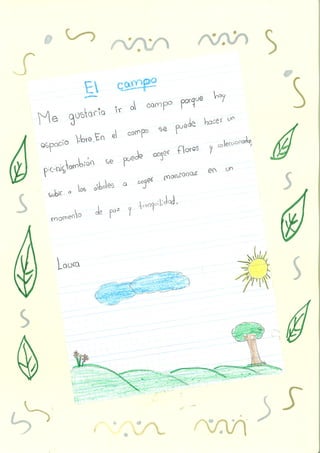 El campo
Me gustaria ir al campo porque hay
espacio libre.En el campo se puede hacer un
pic-nig,también se puede coger flores y
subir a los árboles a coger manzanas en un
momento de paz y tranquilidad.
Laura